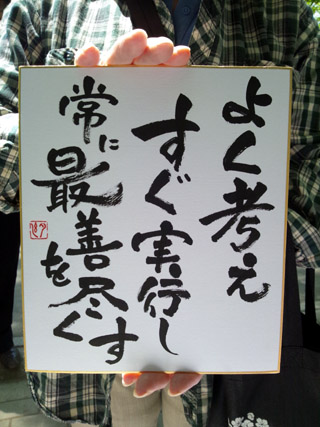 よく考え
すぐ実行し
常に最善を尽くす